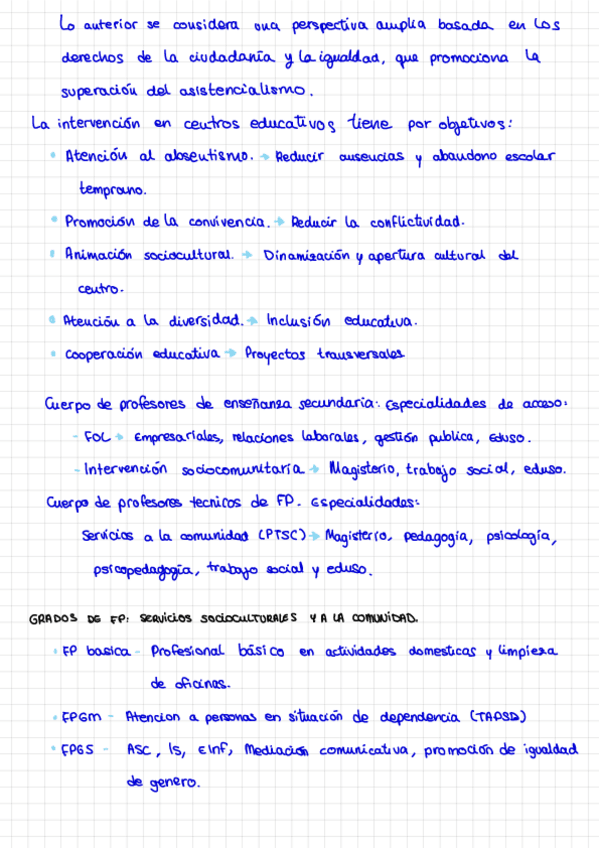 Lo anterior se considera una perspectiva amplia basada en los
derechos de la ciudadanía y la igualdad, que promociona la
superación del asistencialismo.
La intervención en centros educativos tiene por objetivos:
• Atención al absentismo. → Reducir ausencias y abandono escolar
temprano.
• Promoción de la convivencia. → Reducir la conflictividad.
• Animación sociocultural. → Dinamización y apertura cultural del
centro.
• Atención a la diversidad. → Inclusión educativa.
• Cooperación educativa → Proyectos transversales
Cuerpo de profesores de enseñanza secundaria: Especialidades de acceso:
- FOL → Empresariales, relaciones laborales, gestión publica, Eduso.
- Intervención sociocomunitaria → Magisterio, trabajo social, eduso.
Cuerpo de profesores tecnicos de FP. Especialidades:
Servicios a la comunidad (PTSC) → Magisterio, pedagogía, psicología,
psicopedagogía, trabajo social y eduso.
GRADOS DE FP: SERVICIOS SOCIOCULTURALES Y A LA COMUNIDAD.
• FP basica - Profesional básico en actividades domesticas y limpieza
de oficinas.
• FPGM - Atencion a personas en situación de dependencia (TAPSD)
• FPGS - ASC, IS, EInf, Mediación comunicativa, promoción de igualdad
de genero.